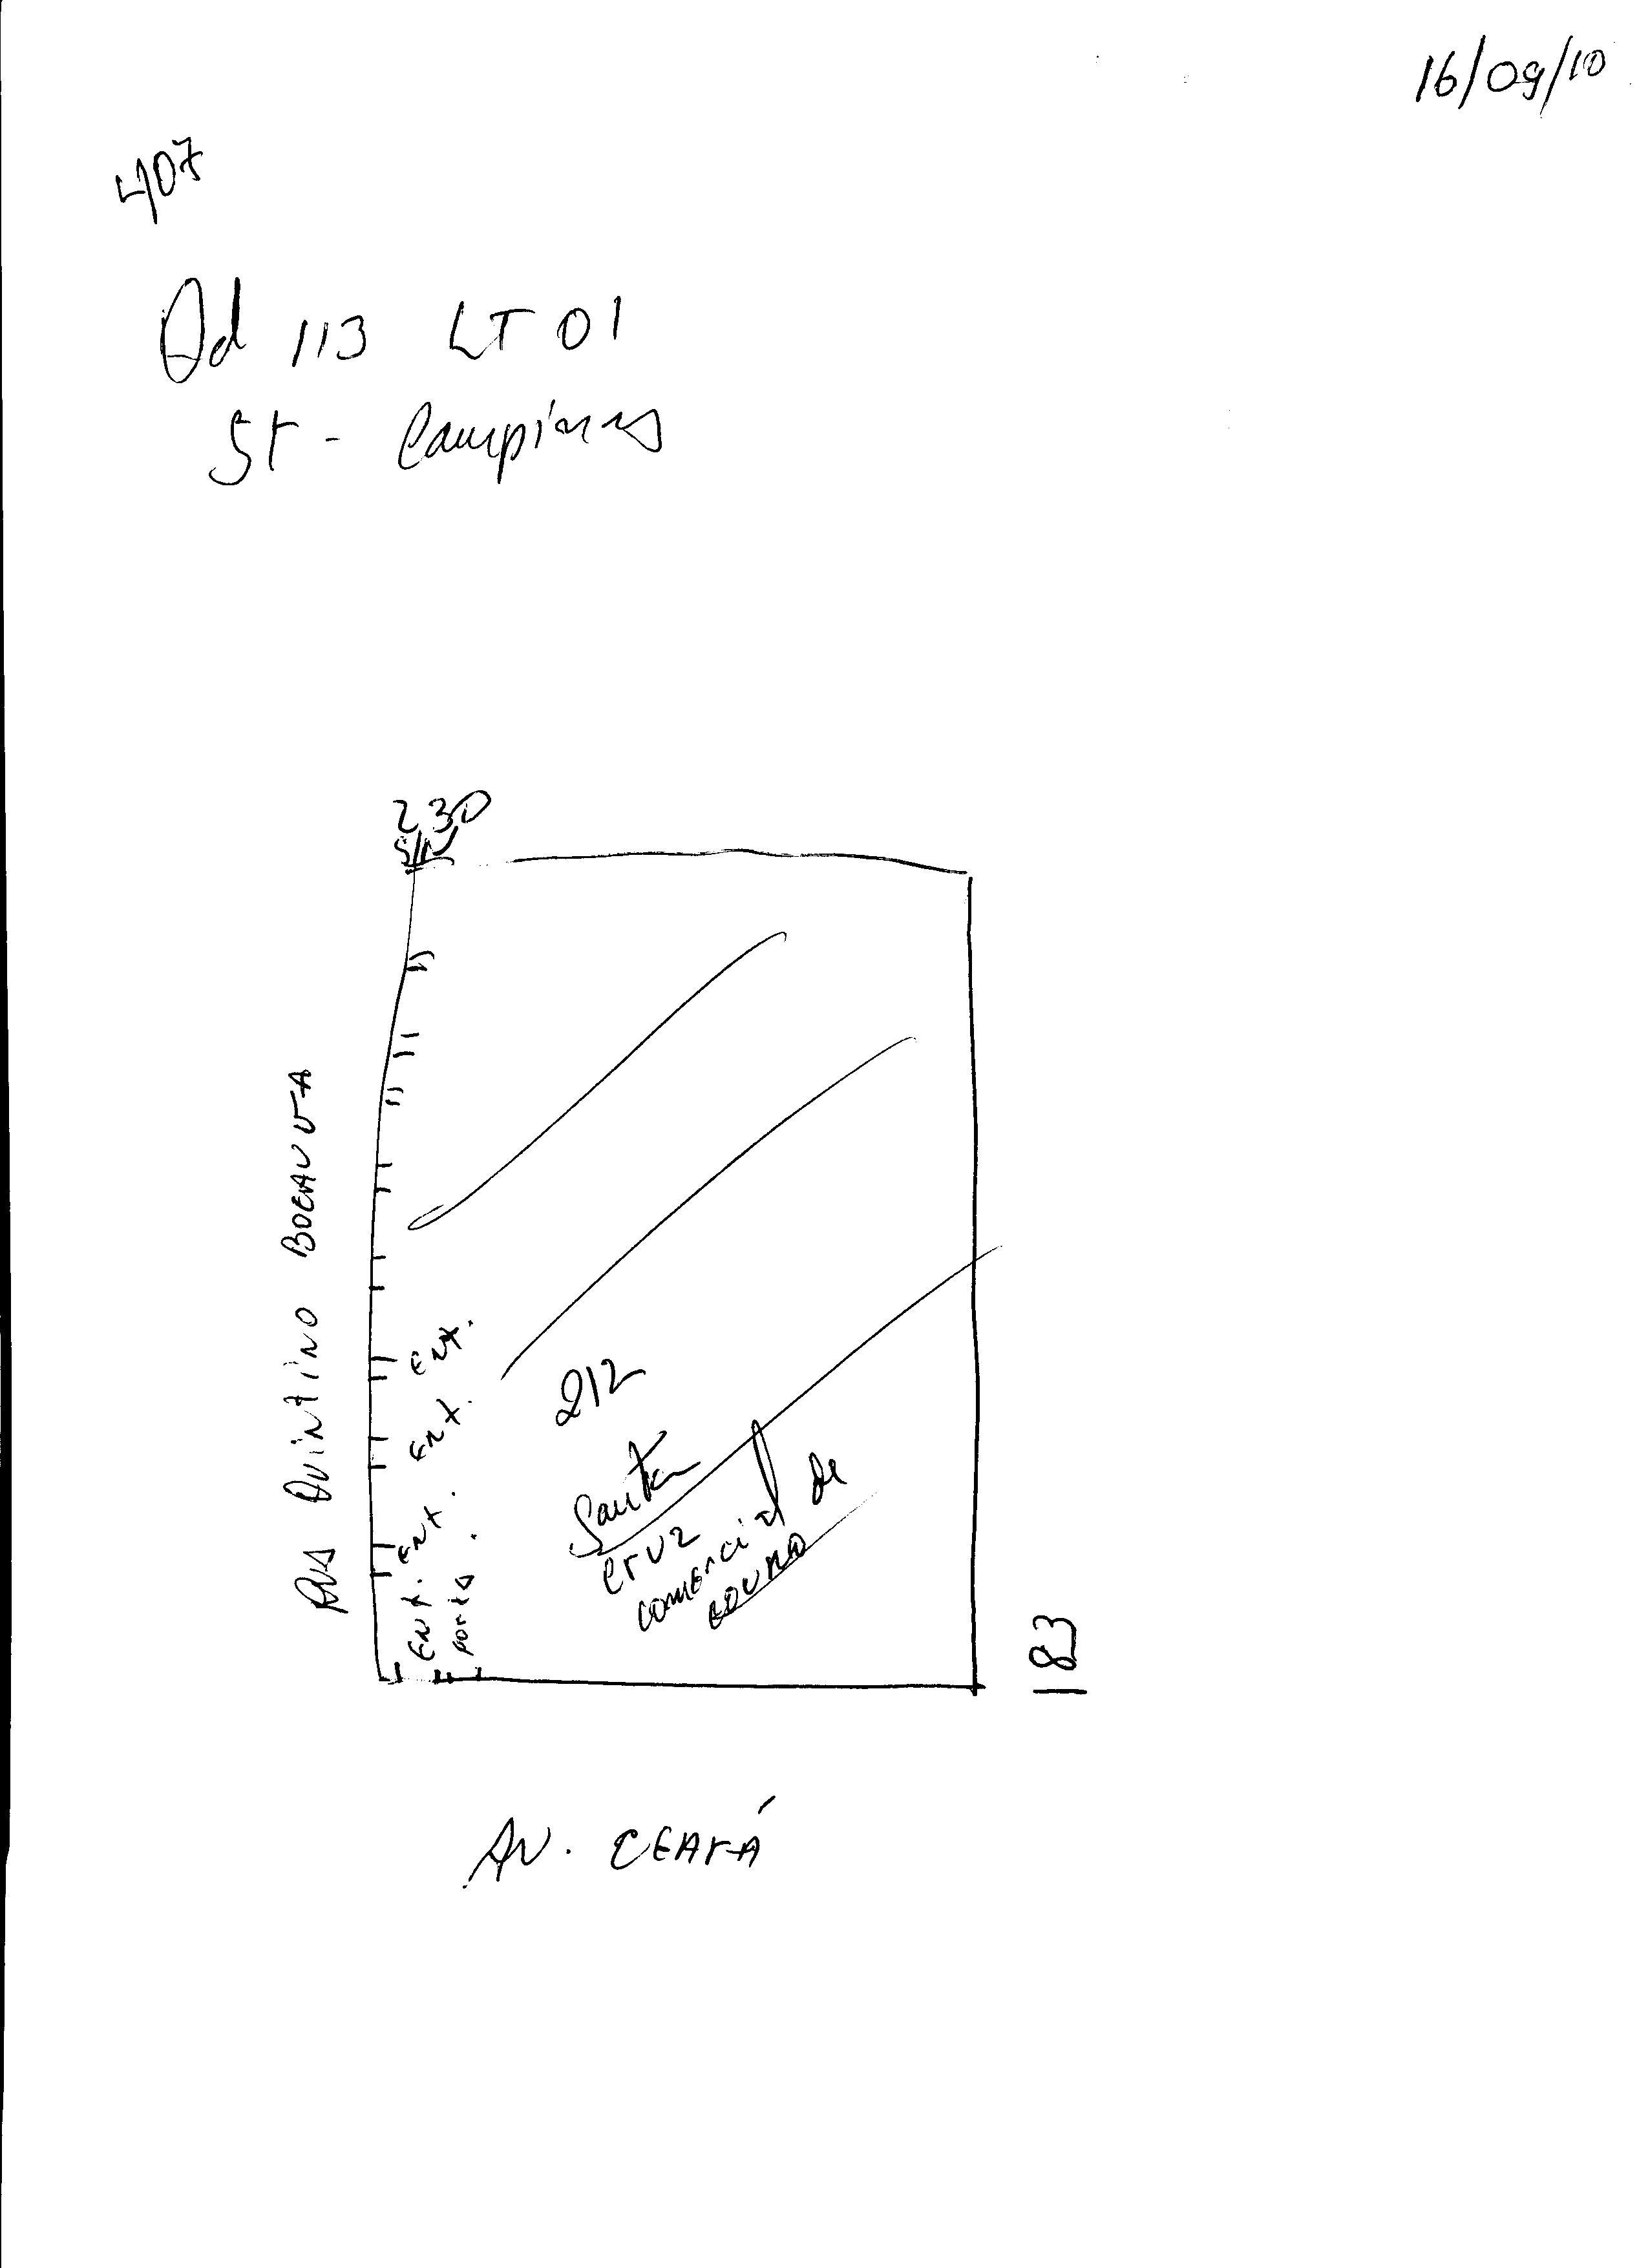 16/09/10
407
Qd 113 LT 01
St - Campinas
230
S/N
Rua Quintino BOCAUVA
Ent.
Ent.
Ent.
Ent.
porta
212
Santa
Cruz
comercial de
couro
183
AV. CEARÁ